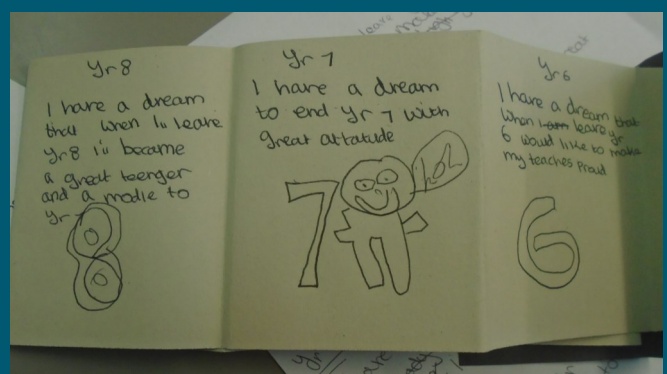 Yr 8
I have a dream
that when I'll leave
Yr 8 i'll became
a great teenger
and a modle to
Yr 7
8
Yr 7
I have a dream
to end Yr 7 with
great attatude
7
LOL
Yr 6
I have a dream that
when I am leave yr
6 would like to make
my teaches Proud
6